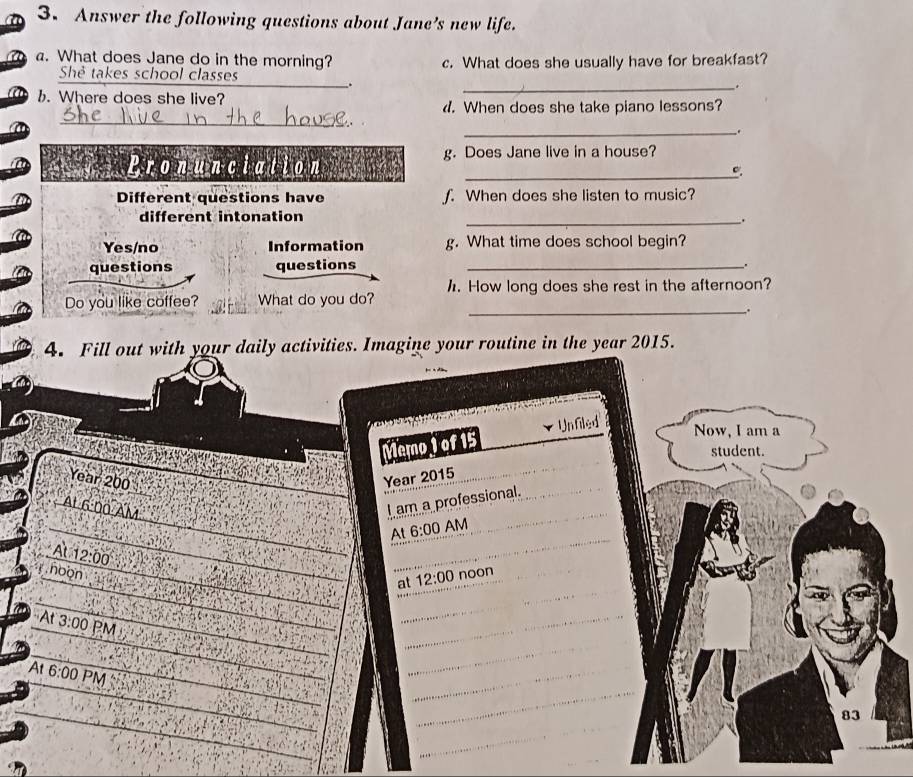 3. Answer the following questions about Jane's new life.
a. What does Jane do in the morning?
She takes school classes.
b. Where does she live?
She live in the house.
Pronunciation
Different questions have
different intonation
Yes/no
questions
Do you like coffee?
Information
questions
What do you do?
c. What does she usually have for breakfast?
d. When does she take piano lessons?
g. Does Jane live in a house?
f. When does she listen to music?
g. What time does school begin?
h. How long does she rest in the afternoon?
4. Fill out with your daily activities. Imagine your routine in the year 2015.
Year 200
At 6:00 AM
At 12:00
noon
At 3:00 PM
At 6:00 PM
Memo 1 of 15
Unfiled
Year 2015
I am a professional.
At 6:00 AM
at 12:00 noon
Now, I am a
student.
83